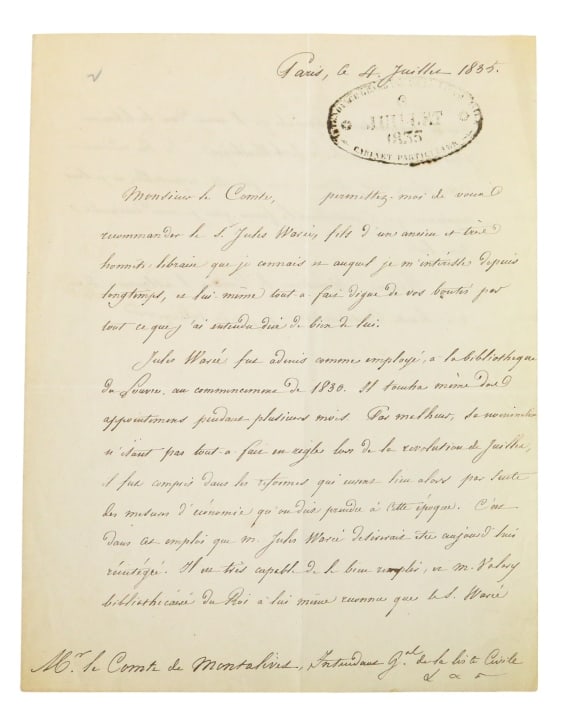 Paris, le 4. Juillet 1835.
6
JUILLET
1835
CABINET PARTICULIER
Monsieur le Comte, permettez-moi de vous
recommander le Sr. Jules Warée, fils d'un ancien et très
honnête libraire que je connais et auquel je m'intéresse depuis
longtemps, et lui même tout-à-fait digne de vos bontés par
tout ce que j'ai entendu dire de bien de lui.
Jules Warée fut admis comme employé, à la bibliothèque
du Louvre, au commencement de 1830. Il toucha même des
appointemens pendant plusieurs mois. Par malheur, sa nomination
n'étant pas tout-à-fait en règles lors de la révolution de Juillet,
il fut compris dans les réformes qui eurent lieu alors par suite
des mesures d'économie qu'on dut prendre à cette époque. C'est
dans cet emploi que M. Jules Warée désirerait être aujourd'hui
réintégré. Il est très capable de le bien remplir, et M. Valery
bibliothécaire du Roi a lui même reconnu que le S. Warée
Mr. le Comte de Montalivet, Intendant Gal. de la liste Civile